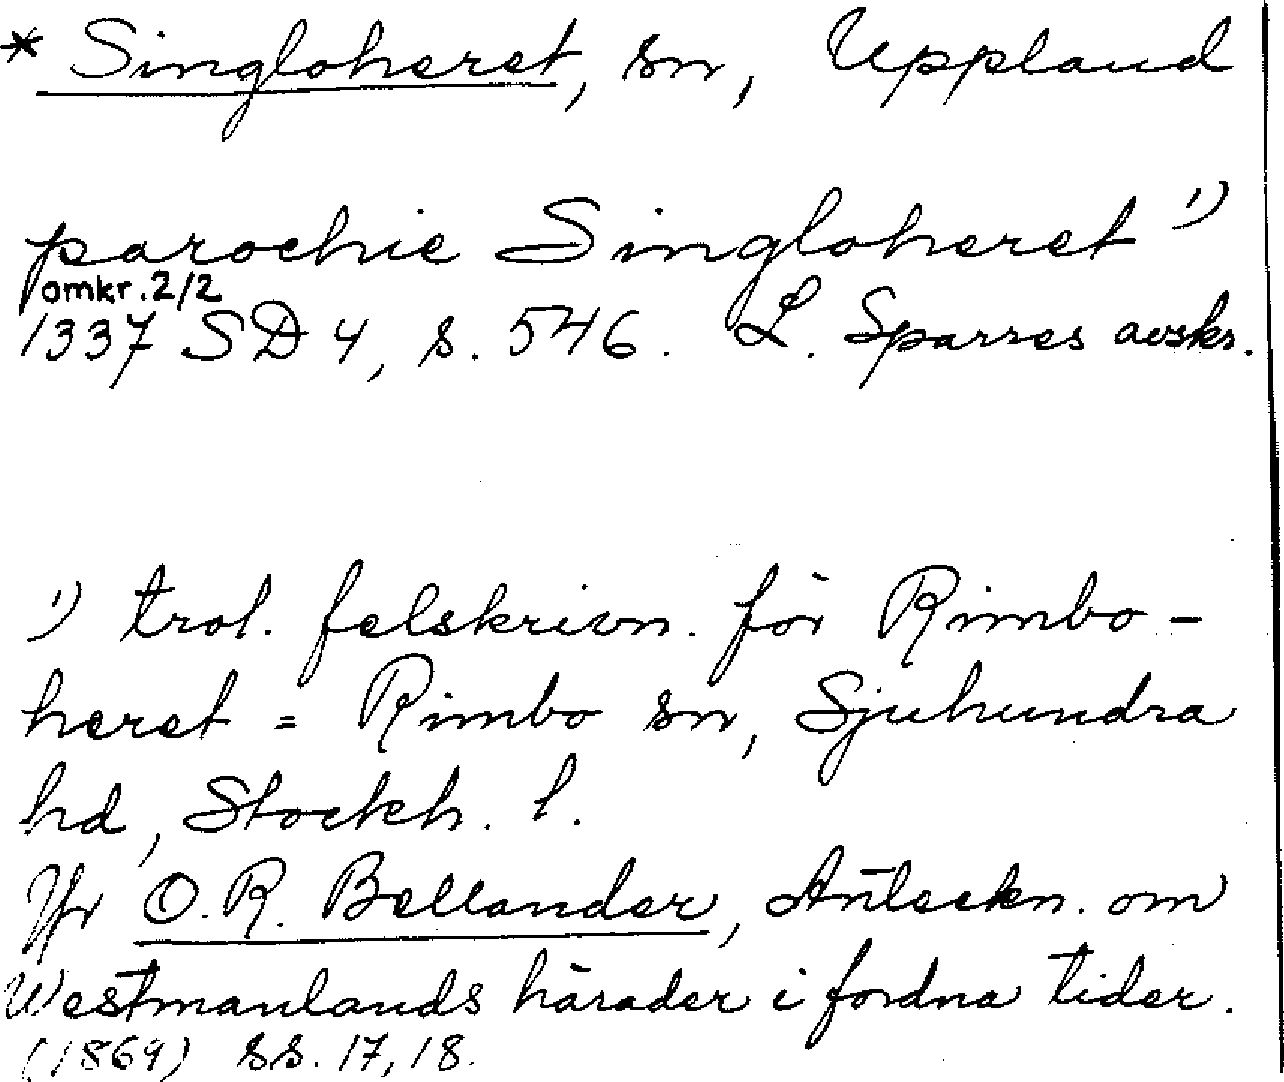 * Singloheret, sn, Uppland
parochie Singloheret 1)
omkr. 2/2
1337 SD 4, s. 546. L. Sparres avskr.
1) trol. felskrivn. för Rimbo-
heret = Rimbo sn, Sjuhundra
hd, Stockh. l.
Jfr O. R. Bellander, Anteckn. om
Westmanlands härader i fordna tider.
(1869) ss. 17, 18.